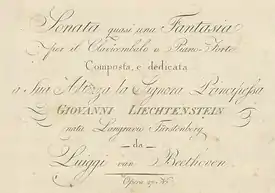 Sonata quasi una Fantasia
per il Clavicembalo o Piano-Forte
Composta, e dedicata
a Sua Altezza la Signora Principessa
GIOVANNI LIECHTENSTEIN
nata Langravio Fürstenberg
da
Luiggi van Beethoven
Opera 27. No